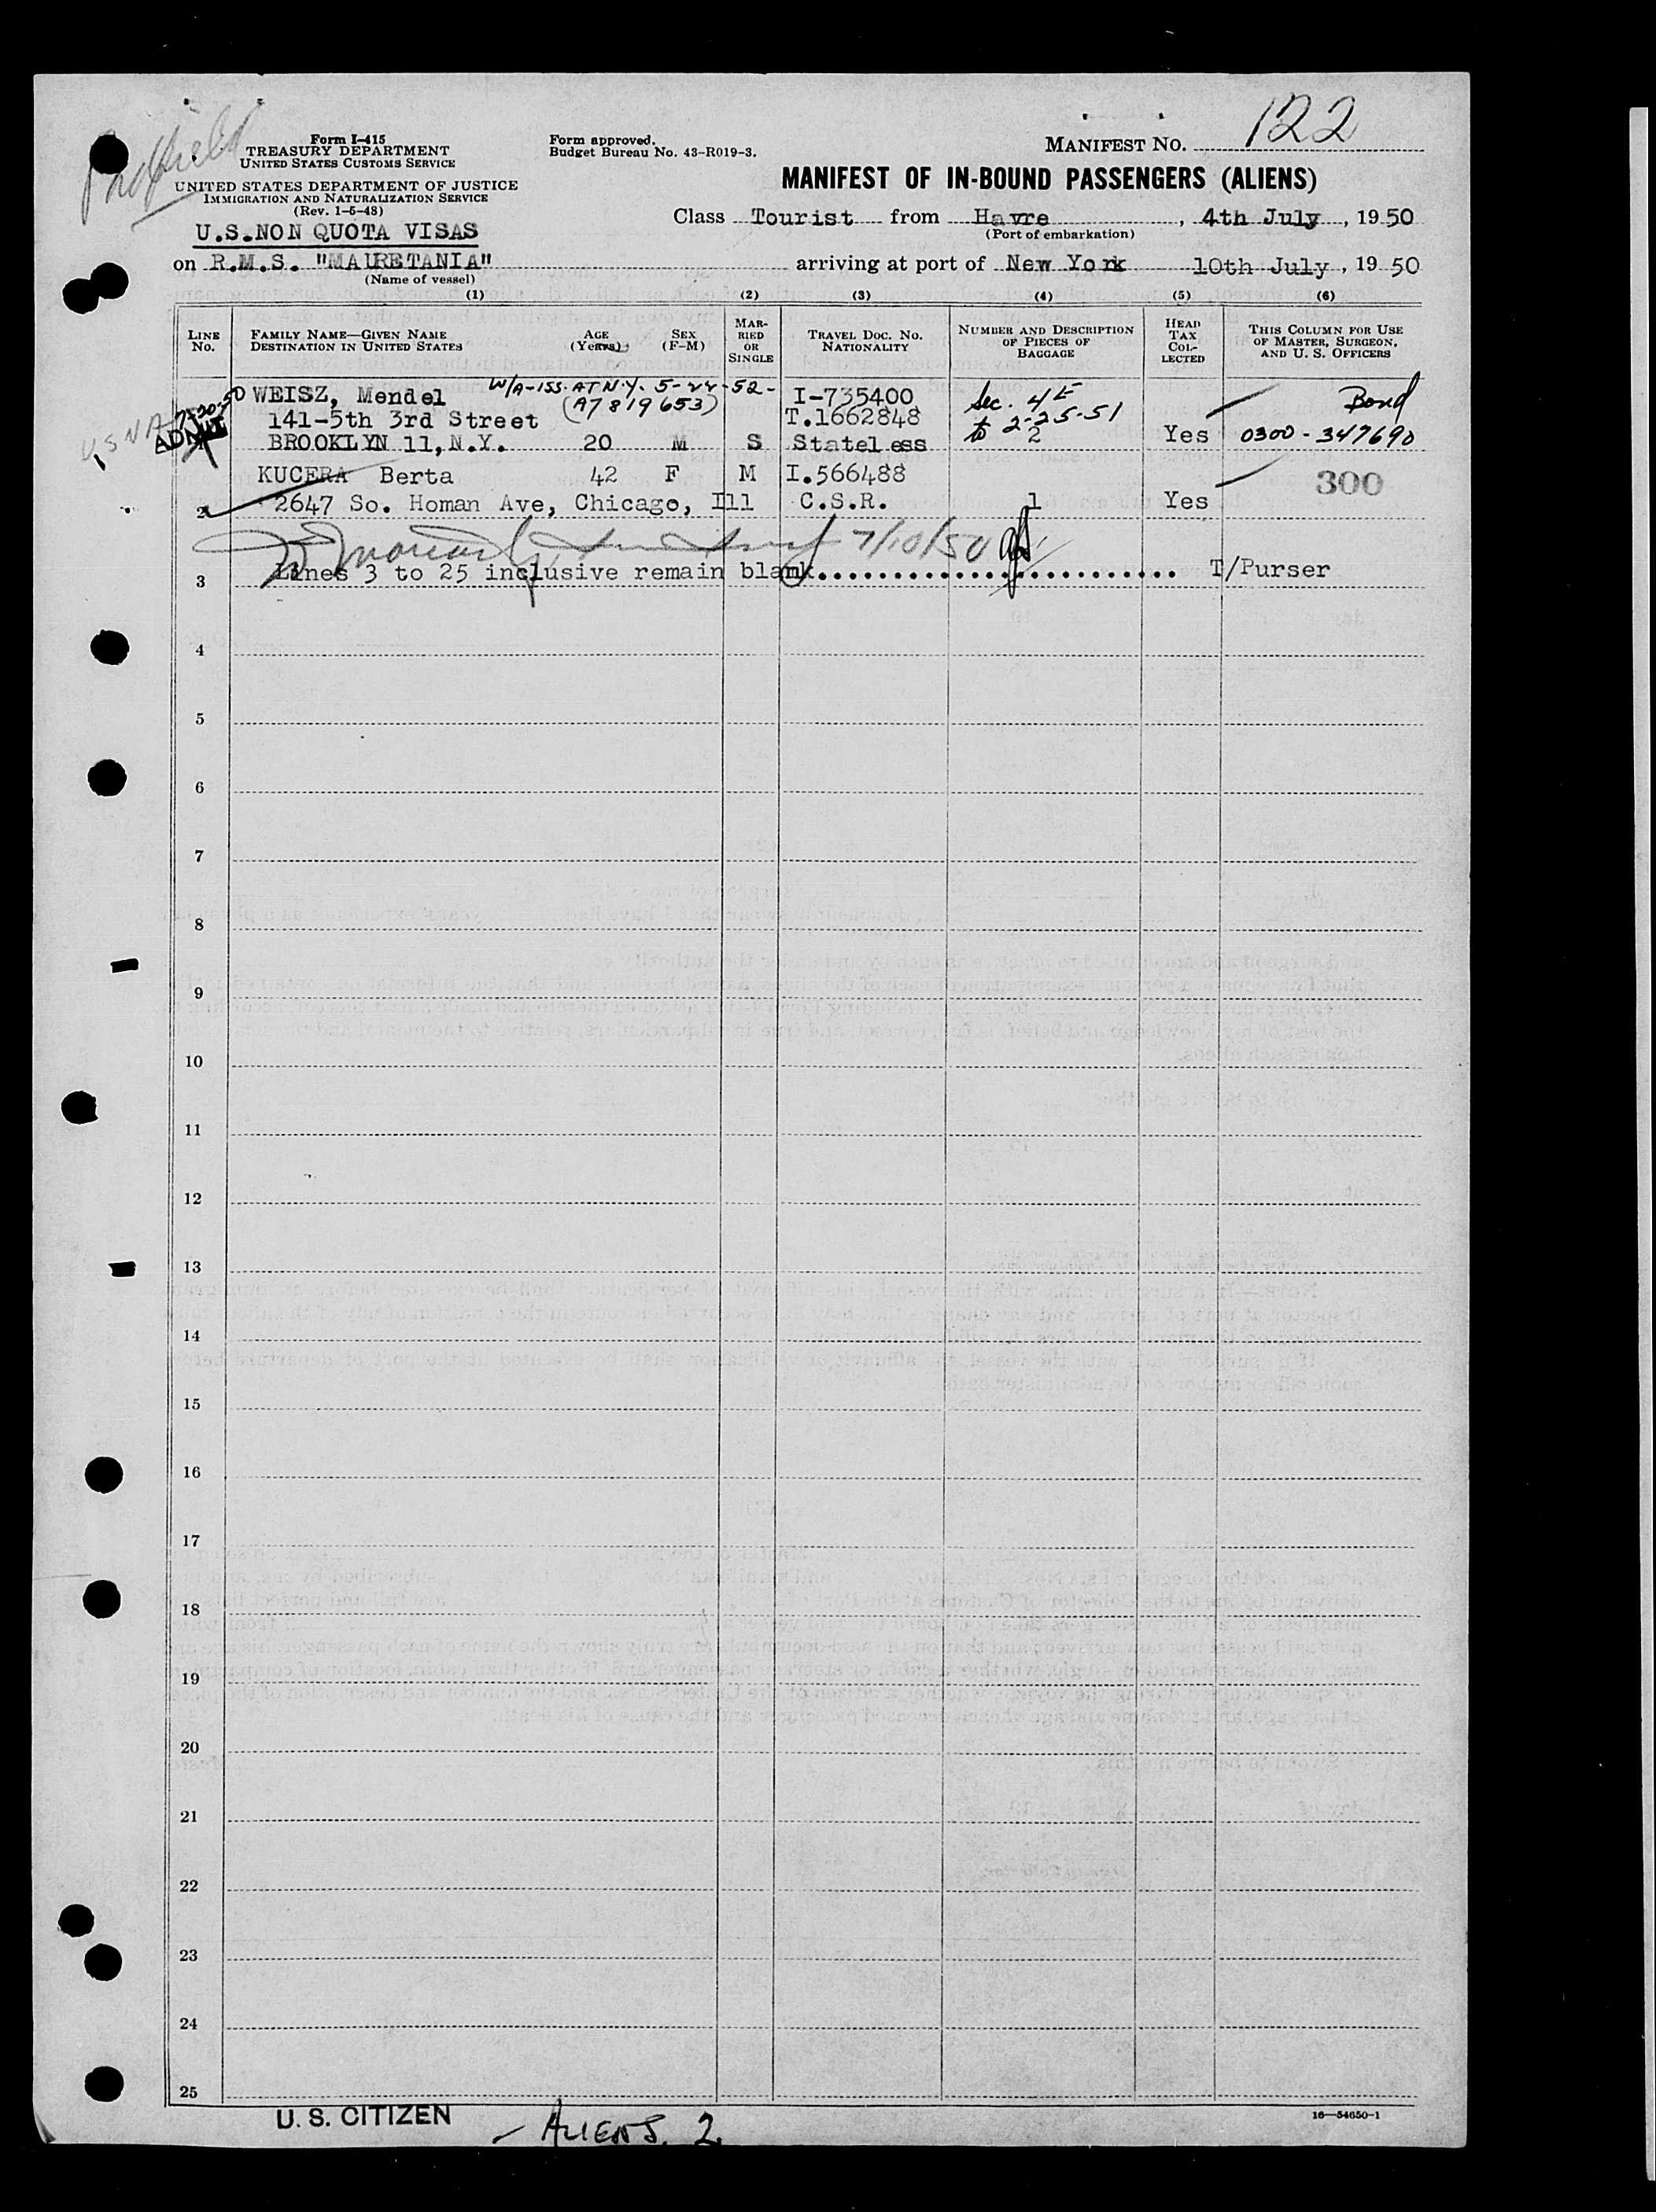 Form I-415
TREASURY DEPARTMENT
UNITED STATES CUSTOMS SERVICE
UNITED STATES DEPARTMENT OF JUSTICE
IMMIGRATION AND NATURALIZATION SERVICE
(Rev. 1-5-48)
U.S.NON QUOTA VISAS
Form approved.
Budget Bureau No. 43-R019-3.
MANIFEST NO. 122
MANIFEST OF IN-BOUND PASSENGERS (ALIENS)
Class Tourist from Havre, 4th July, 1950
(Port of embarkation)
on R.M.S. "MAURETANIA" arriving at port of New York 10th July, 1950
(Name of vessel)
(1) (2) (3) (4) (5) (6)
LINE No.
FAMILY NAME—GIVEN NAME
DESTINATION IN UNITED STATES
AGE (Years)
SEX (F-M)
MARRIED OR SINGLE
TRAVEL DOC. No.
NATIONALITY
NUMBER AND DESCRIPTION OF PIECES OF BAGGAGE
HEAD TAX COLLECTED
THIS COLUMN FOR USE OF MASTER, SURGEON, AND U. S. OFFICERS
W/A-ISS. AT N.Y. 5-22-52-
WEISZ, Mendel (A7819653) I-735400 Sec. 4E Bond
USNA 7-20-50 141-5th 3rd Street T.1662848 to 2-25-51
ADMIT
1 BROOKLYN 11,N.Y. 20 M S Stateless 2 Yes 0300-347690
KUCERA Berta 42 F M I.566488 300
2 2647 So. Homan Ave, Chicago, Ill C.S.R. 1 Yes
7/10/50
3 Lines 3 to 25 inclusive remain blank............................ T/Purser
4
5
6
7
8
9
10
11
12
13
14
15
16
17
18
19
20
21
22
23
24
25
U. S. CITIZEN – ALIENS. 2.
16—54650-1